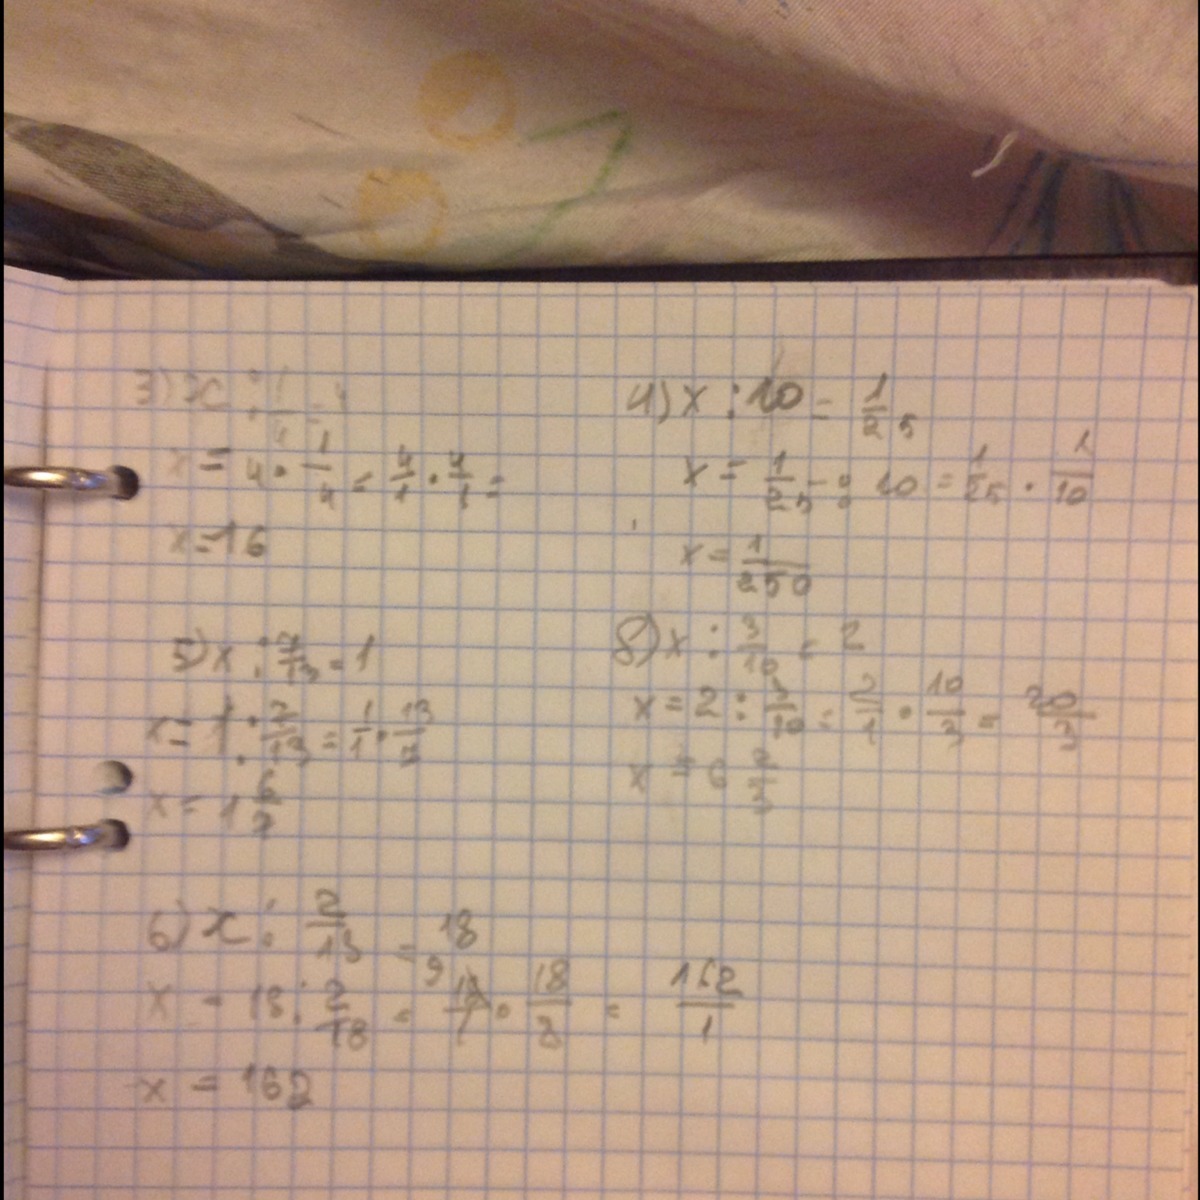 3) x : 1/4 = 4
x = 4 · 1/4 = 4/1 · 4/1 =
x = 16
4) x : 10 = 1/25
x = 1/25 : 10 = 1/25 · 1/10
x = 1/250
5) x : 7/13 = 1
x = 1 : 7/13 = 1/1 · 13/7
x = 1 6/7
8) x : 3/10 = 2
x = 2 : 3/10 = 2/1 · 10/3 = 20/3
x = 6 2/3
6) x : 2/18 = 18
x = 18 : 2/18 = 18/1 · 18/2 = 162/1
x = 162